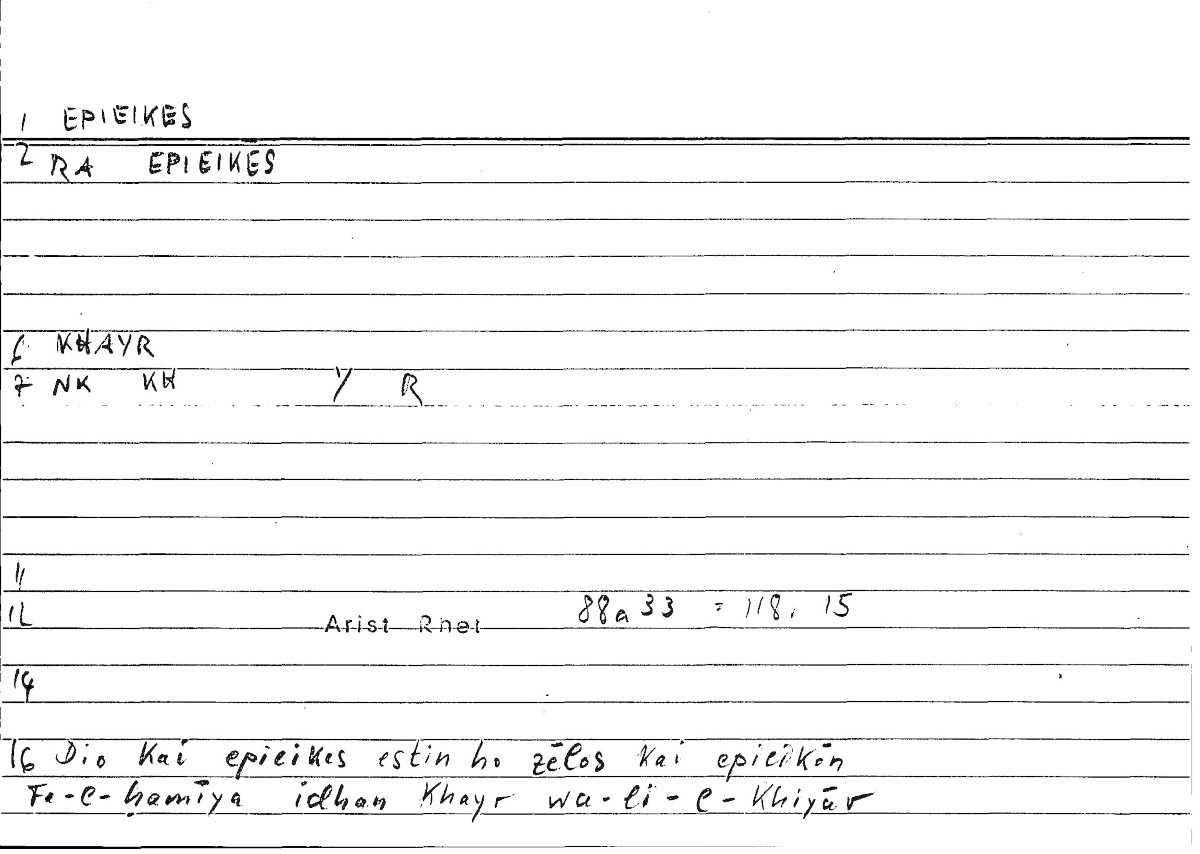 1 EPIEIKES
2 RA EPIEIKĒS
6 KHAYR
7 NK KH Y R
11
12 Arist Rhet 88a33 = 118, 15
14
16 Dio kai epieikes estin ho zēlos kai epieikōn
Fa-l-ḥamīya idhan khayr wa-li-l-khiyār